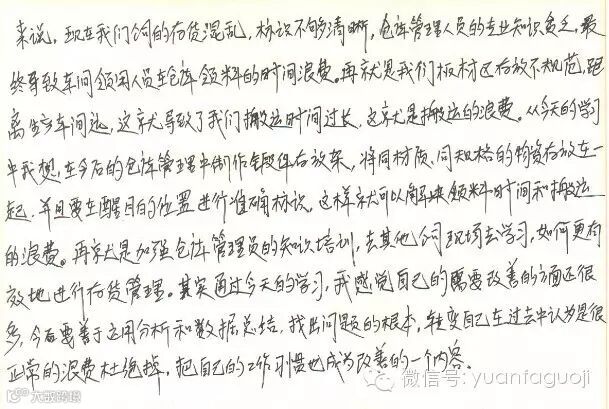 来说，现在我们公司的存货混乱，标识不够清晰，仓库管理人员的专业知识贫乏，最
终导致车间领用人员在仓库领料的时间浪费。再就是我们板材区存放不规范，距
离生产车间远，这就导致了我们搬运时间过长，这就是搬运的浪费。从今天的学习
中我想，在今后的仓库管理中制作锻件存放架，将同材质、同规格的物资存放在一
起，并且要在醒目的位置进行准确标识。这样就可以解决领料时间和搬运
的浪费。再就是加强仓库管理员的知识培训，去其他公司现场去学习，如何更有
效地进行存货管理。其实通过今天的学习，我感觉自己的需要改善的方面还很
多，今后要善于运用分析和数据总结，找出问题的根本，转变自己在过去中认为是很
正常的浪费杜绝掉，把自己的工作习惯也成为改善的一个内容。
微信号: yuanfaguoji
大数跨境